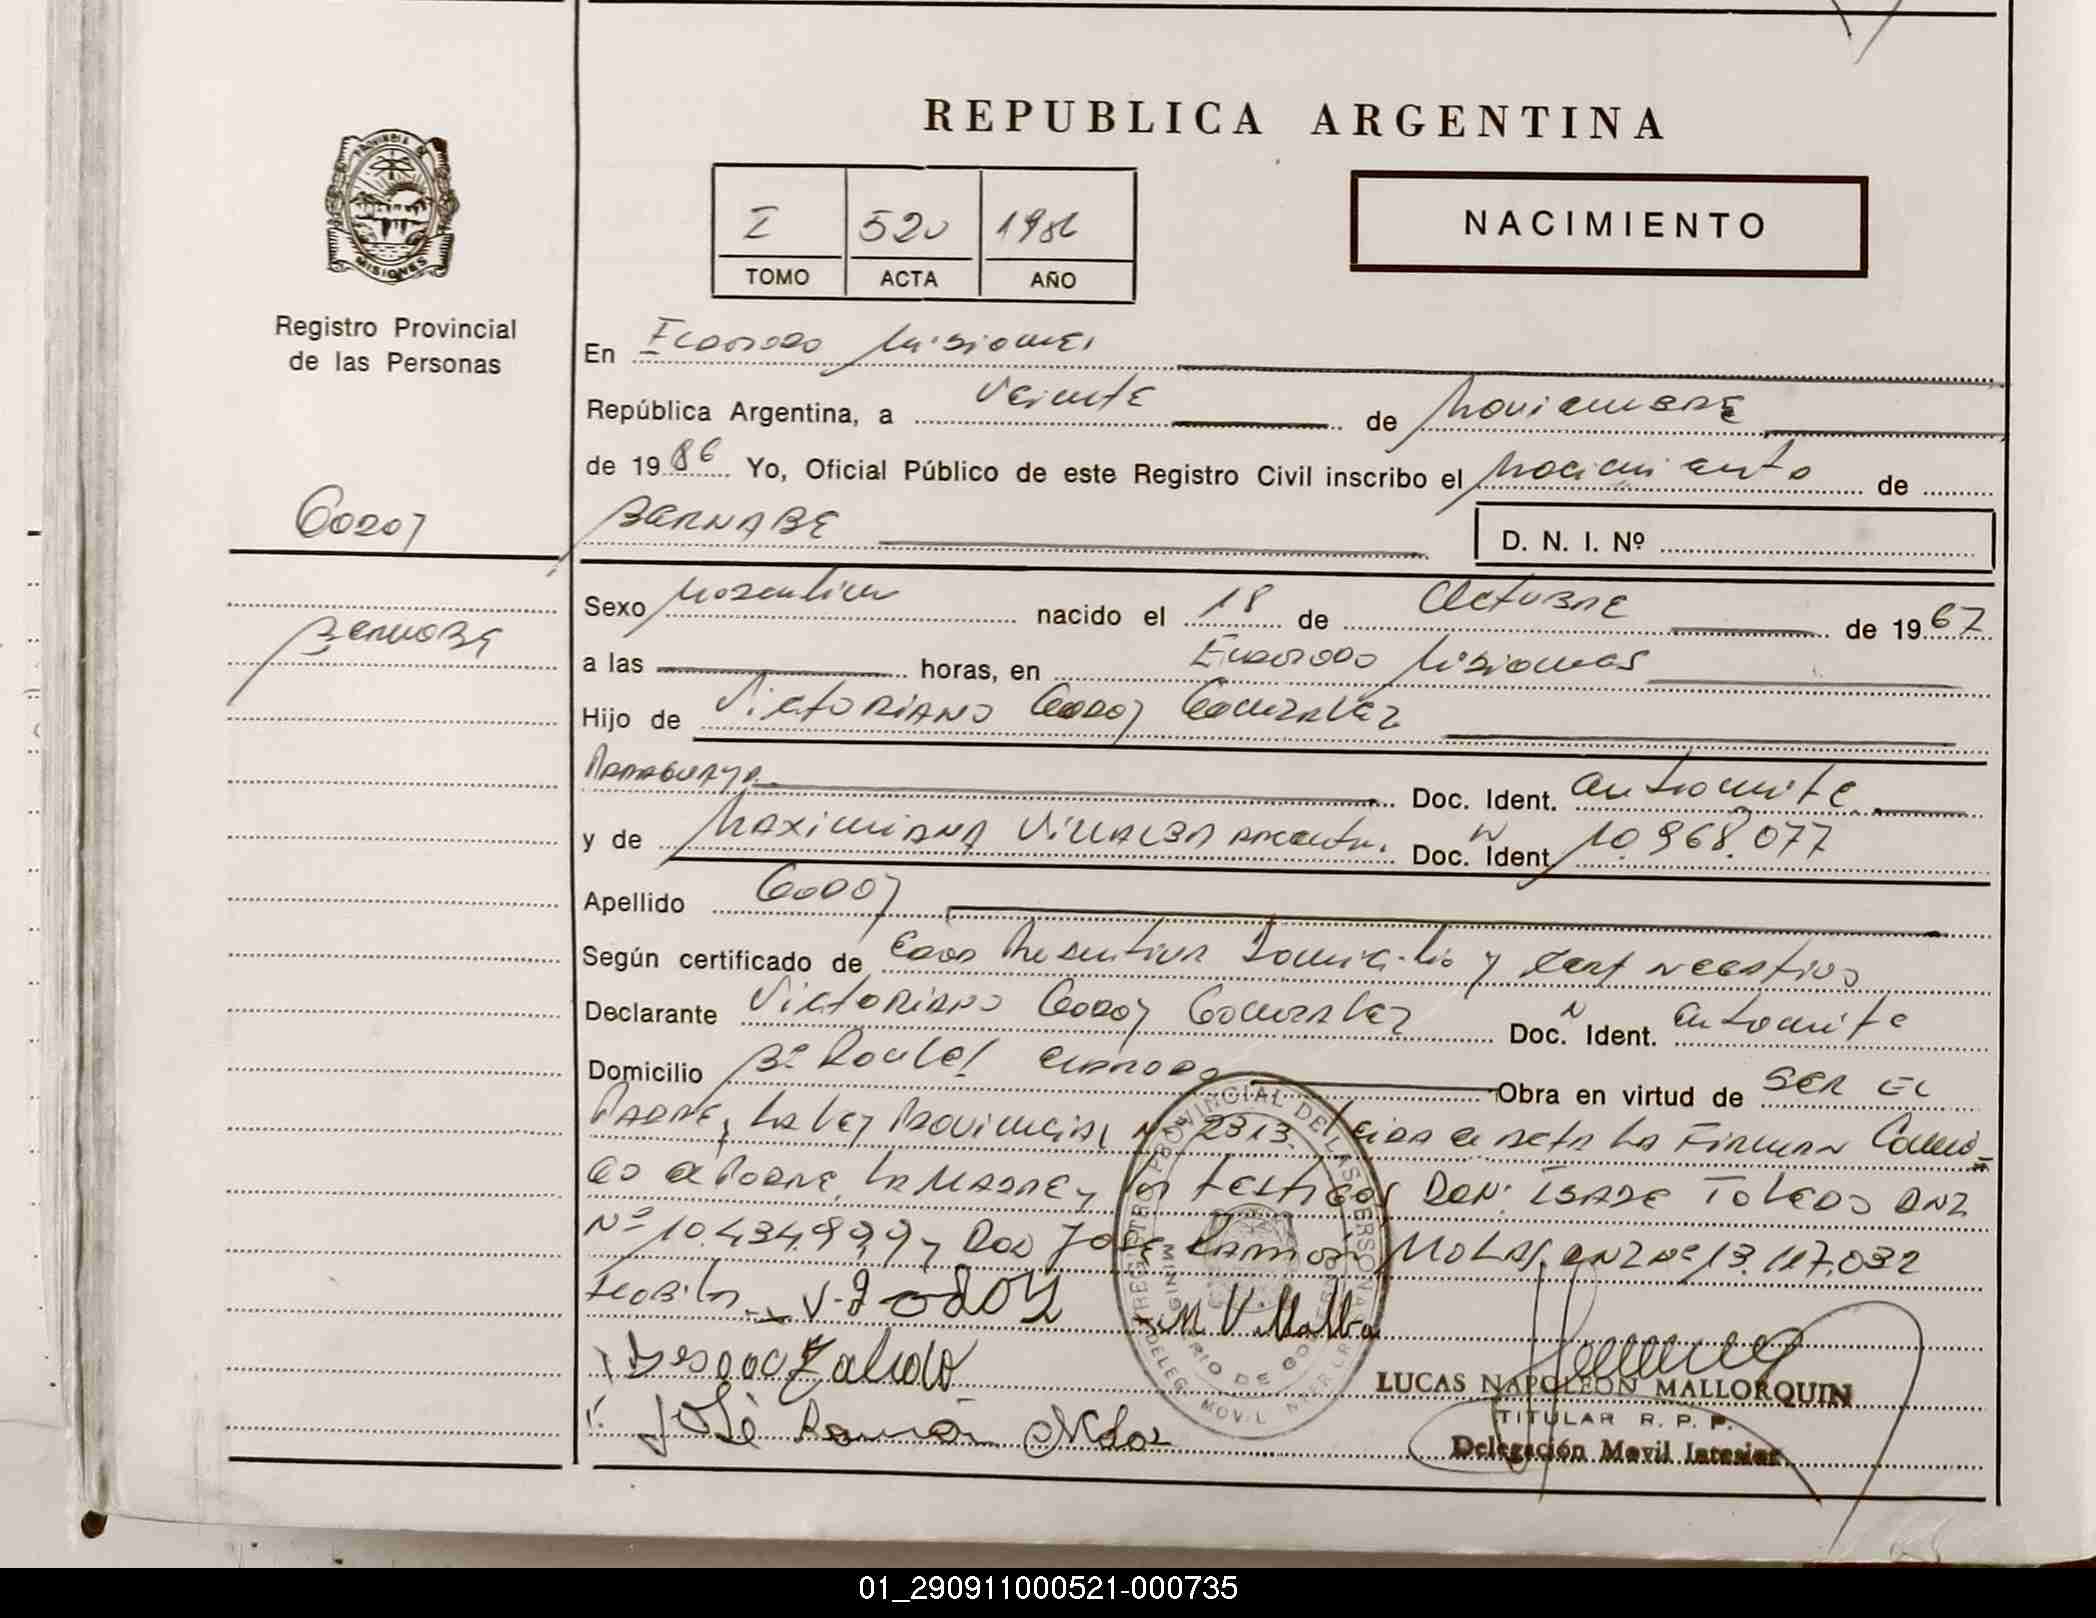 REPUBLICA ARGENTINA
PROVINCIA DE
MISIONES
Registro Provincial
de las Personas
I 520 1986
TOMO ACTA AÑO
NACIMIENTO
En Eldorado Misiones
República Argentina, a Veinte de Noviembre
de 1986 Yo, Oficial Público de este Registro Civil inscribo el Nacimiento de
Godoy
BERNABE
D. N. I. Nº
Bernabe
Sexo Masculino nacido el 18 de Octubre de 1967
a las horas, en Eldorado Misiones
Hijo de Victoriano Godoy Gonzalez
Paraguayo Doc. Ident.
y de Maximiana Villalba Doc. Nº Ident 10.968.077
Apellido Godoy
Según certificado de Domicilio y Cert Negativo
Declarante Victoriano Godoy Gonzalez Doc. N Ident.
Domicilio Bº Eldorado Obra en virtud de SER EL
PADRE, La Ley Provincial Nº 2313. Leida el acta La Firman Conmi-
go el Padre, La Madre y los testigos Don: Toledo DNI
Nº 10.434.999 y Don José Ramón Molas, DNI Nº 13.117.032
V. Godoy M Villalba
José Ramón Molas
REGISTRO PROVINCIAL DE LAS PERSONAS
MINISTERIO DE GOBIERNO
DELEG. MOVIL INTERIOR
LUCAS NAPOLEON MALLORQUIN
TITULAR R. P. P.
Delegación Movil Interior
01_290911000521-000735